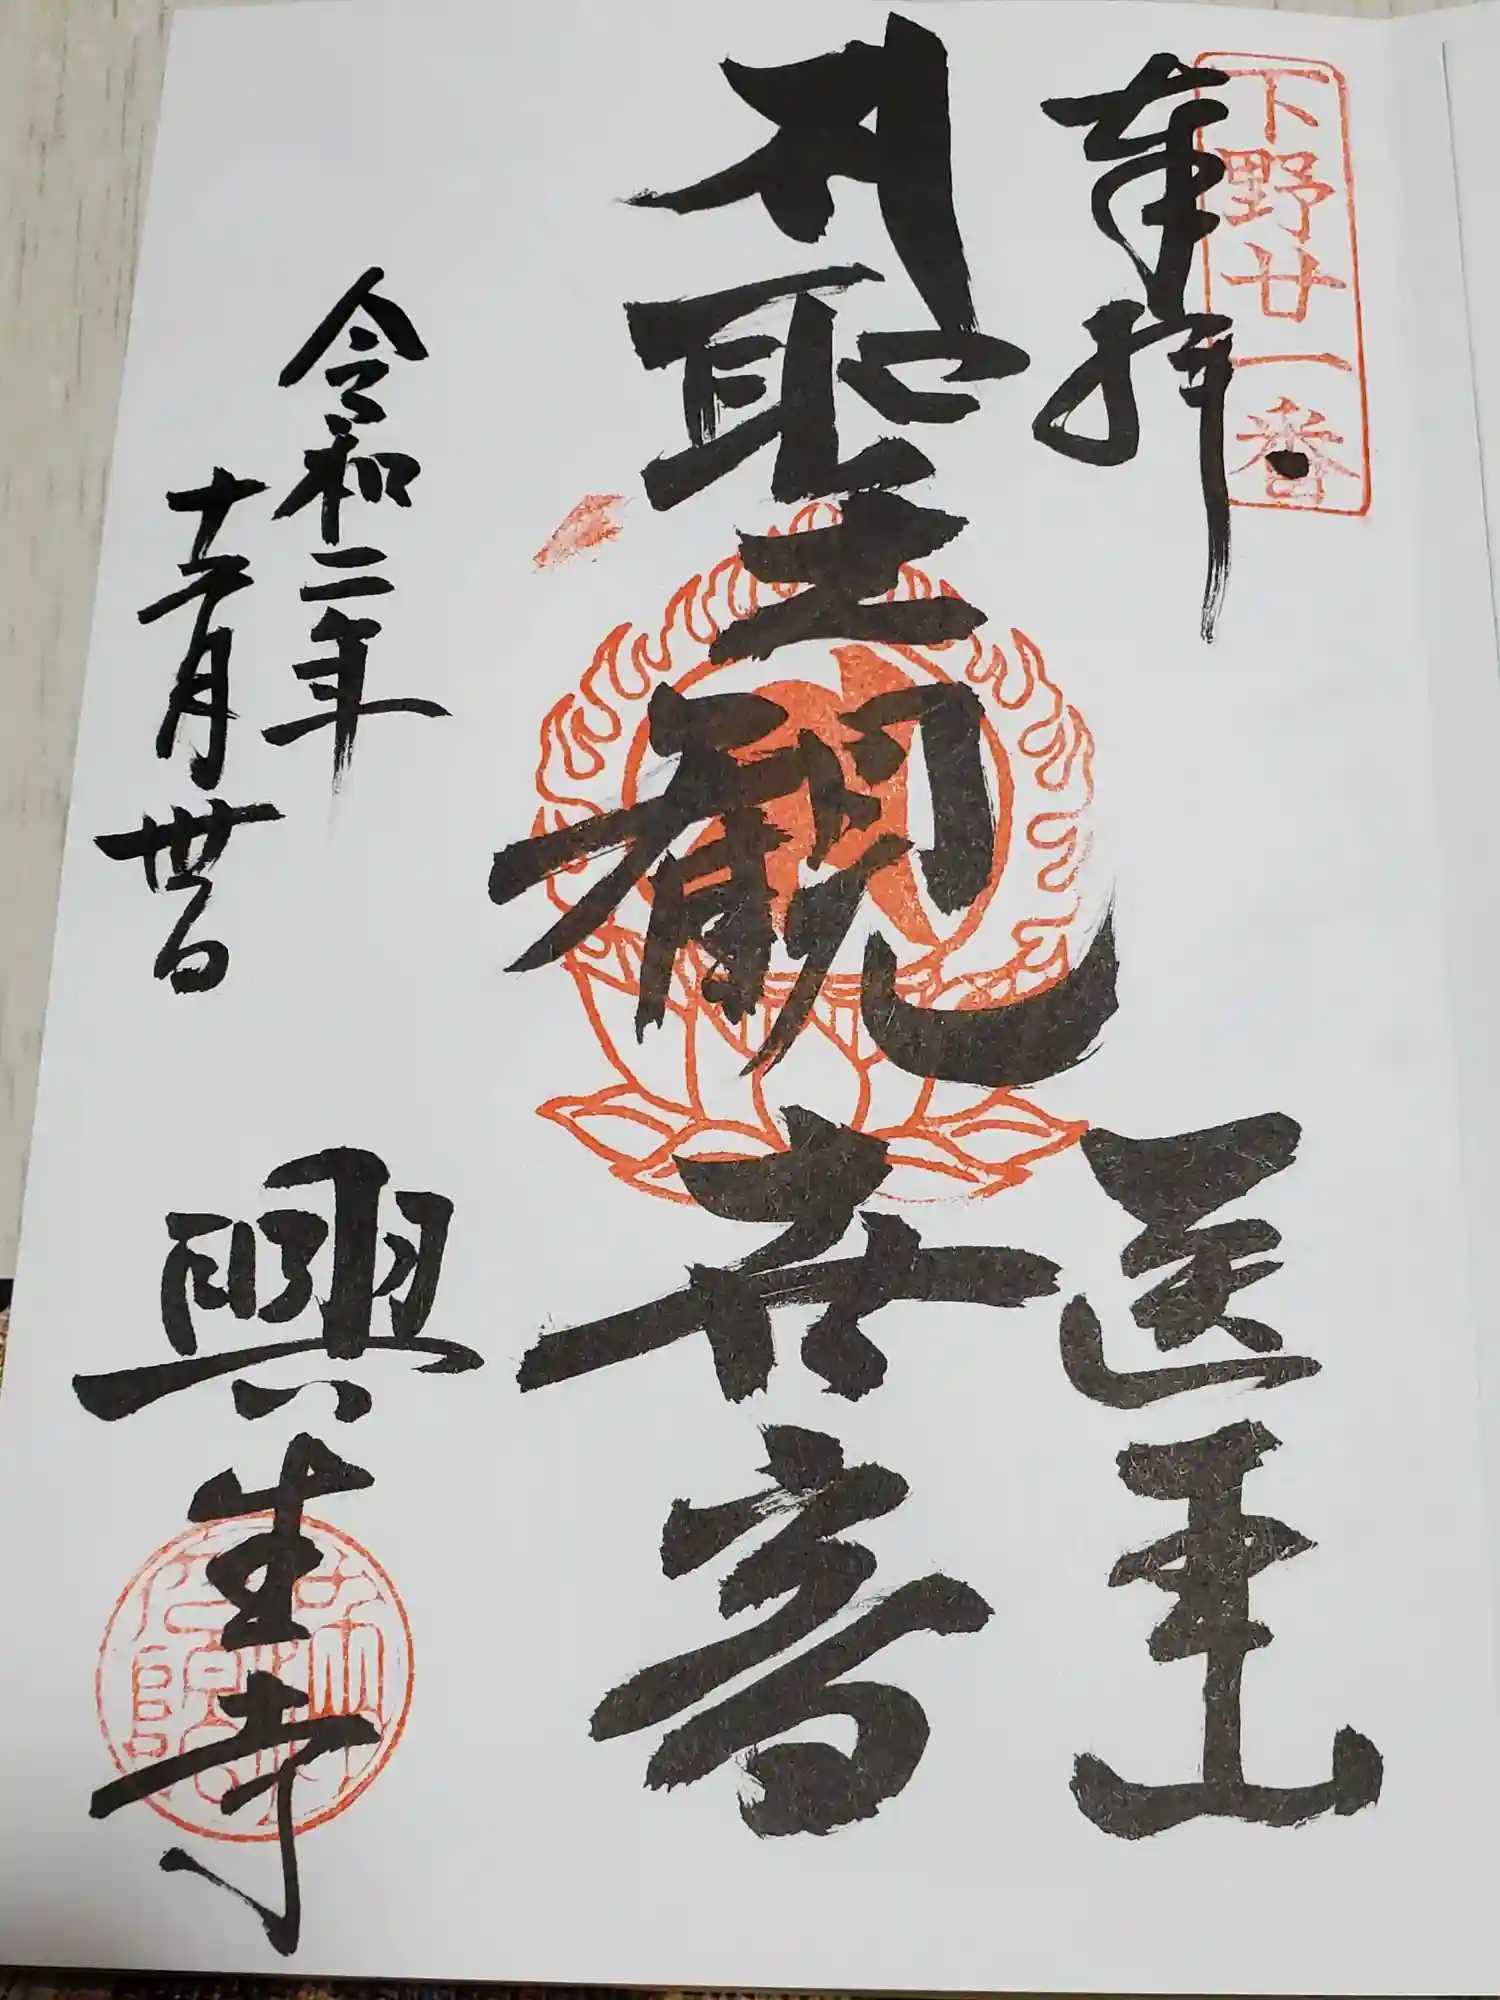 下野廿一番
奉拝
医王山
聖観世音
令和二年
十二月丗日
興生寺